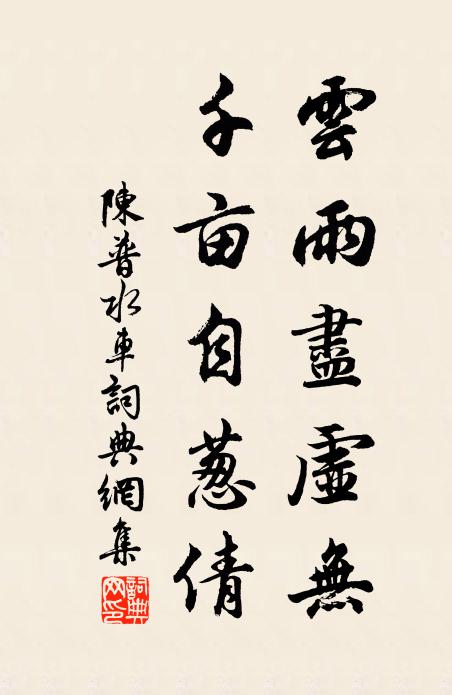 雲雨盡虛無
千亩自葱倩
陳普水車詞典網集
詞典网印